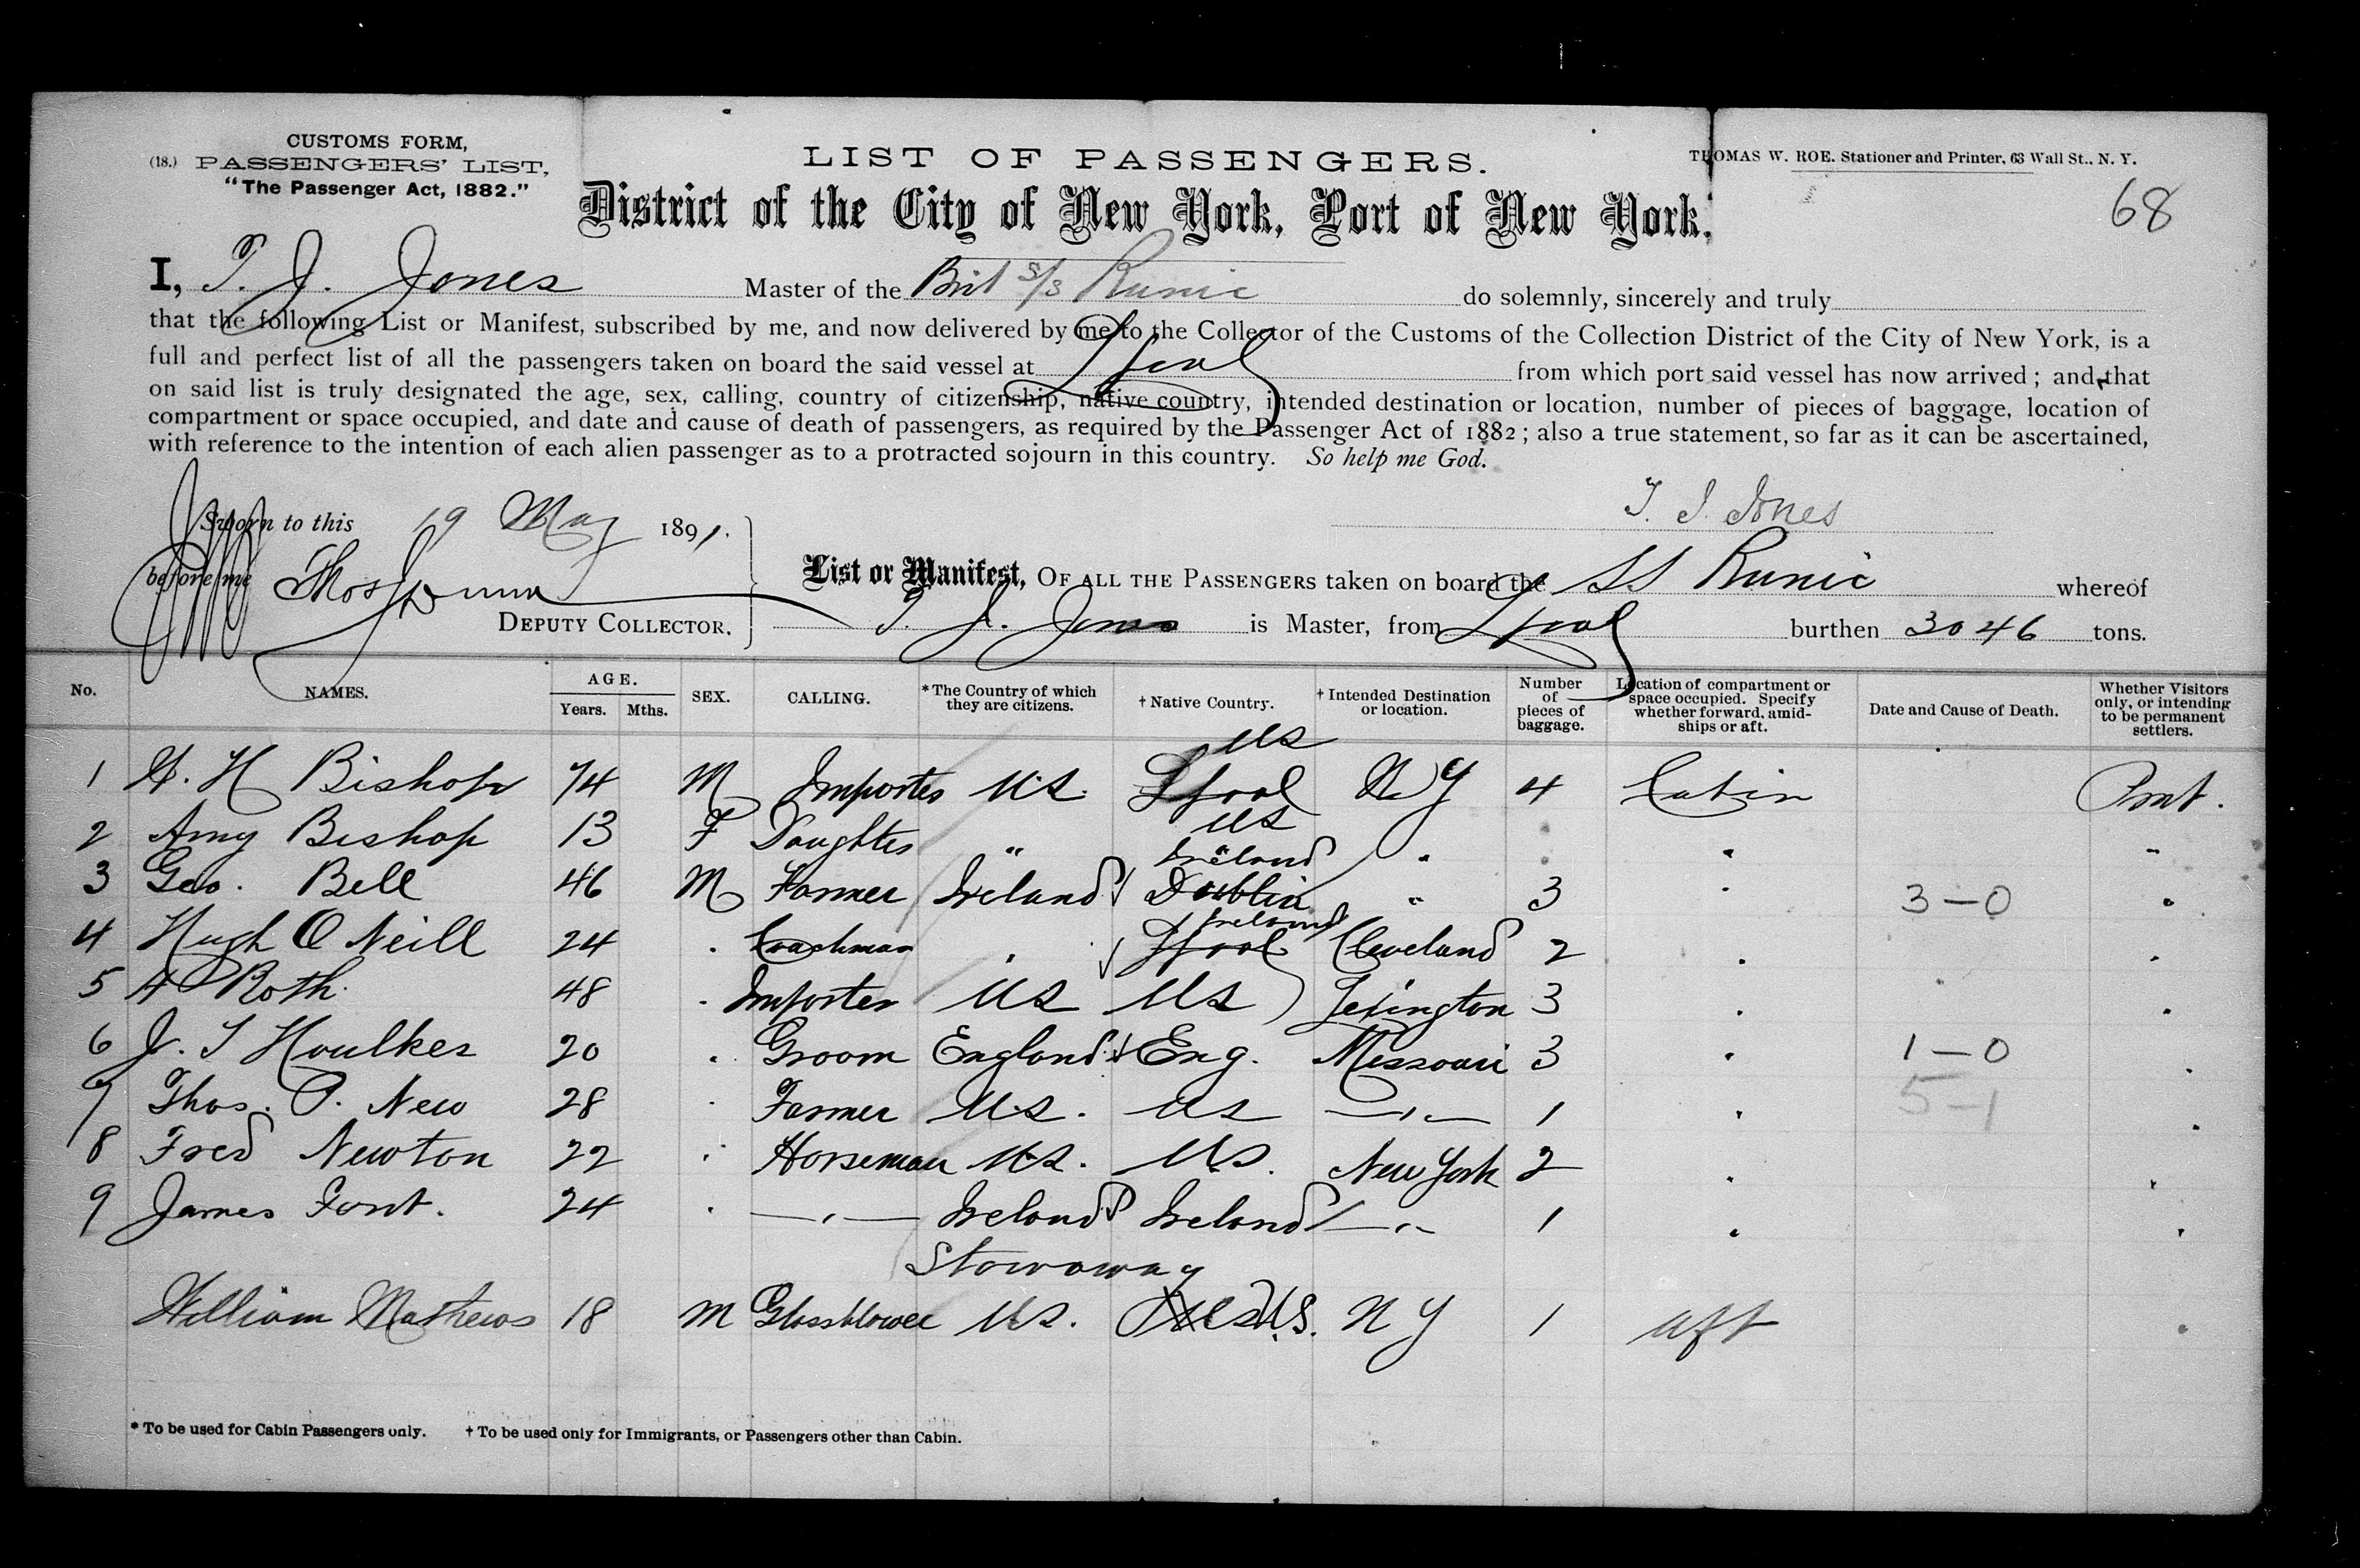 CUSTOMS FORM,
(18.) PASSENGERS' LIST,
"The Passenger Act, 1882."
LIST OF PASSENGERS.
THOMAS W. ROE. Stationer and Printer, 63 Wall St., N. Y.
District of the City of New York, Port of New York.
68
I, T. J. Jones Master of the Brit S/S Runic do solemnly, sincerely and truly
that the following List or Manifest, subscribed by me, and now delivered by me to the Collector of the Customs of the Collection District of the City of New York, is a
full and perfect list of all the passengers taken on board the said vessel at Lpool from which port said vessel has now arrived; and that
on said list is truly designated the age, sex, calling, country of citizenship, native country, intended destination or location, number of pieces of baggage, location of
compartment or space occupied, and date and cause of death of passengers, as required by the Passenger Act of 1882; also a true statement, so far as it can be ascertained,
with reference to the intention of each alien passenger as to a protracted sojourn in this country. So help me God.
T. J. Jones
Sworn to this 19 May 1891.
before me Thos Dunn
DEPUTY COLLECTOR.
List or Manifest, OF ALL THE PASSENGERS taken on board the SS Runic whereof
T. J. Jones is Master, from Lpool burthen 3046 tons.
No. NAMES. AGE. Years. Mths. SEX. CALLING. *The Country of which they are citizens. † Native Country. † Intended Destination or location. Number of pieces of baggage. Location of compartment or space occupied. Specify whether forward, amidships or aft. Date and Cause of Death. Whether Visitors only, or intending to be permanent settlers.
US
1 H Bishop 74 M Importer U.S. Lpool N Y 4 Cabin Pmt.
US
2 Amy Bishop 13 F Daughter " " " " "
Ireland
3 Geo. Bell 46 M Farmer Ireland Dublin " 3 " 3-0 "
Ireland
4 Hugh O Neill 24 " Coachman " Lpool Cleveland 2 " "
5 Roth. 48 " Importer US US Lexington 3 " "
6 J. T Houlkes 20 " Groom England Eng. Missouri 3 " 1-0 "
5-1
7 Thos. P. New 28 " Farmer U.S. US —"— 1 " "
8 Fred Newton 22 " Horseman U.S. U.S. New York 2 " "
9 James Font. 24 " —"— Ireland Ireland —"— 1 " "
Stowaway
William Mathews 18 M Glassblower U.S. U.S. N Y 1 aft "
* To be used for Cabin Passengers only. † To be used only for Immigrants, or Passengers other than Cabin.